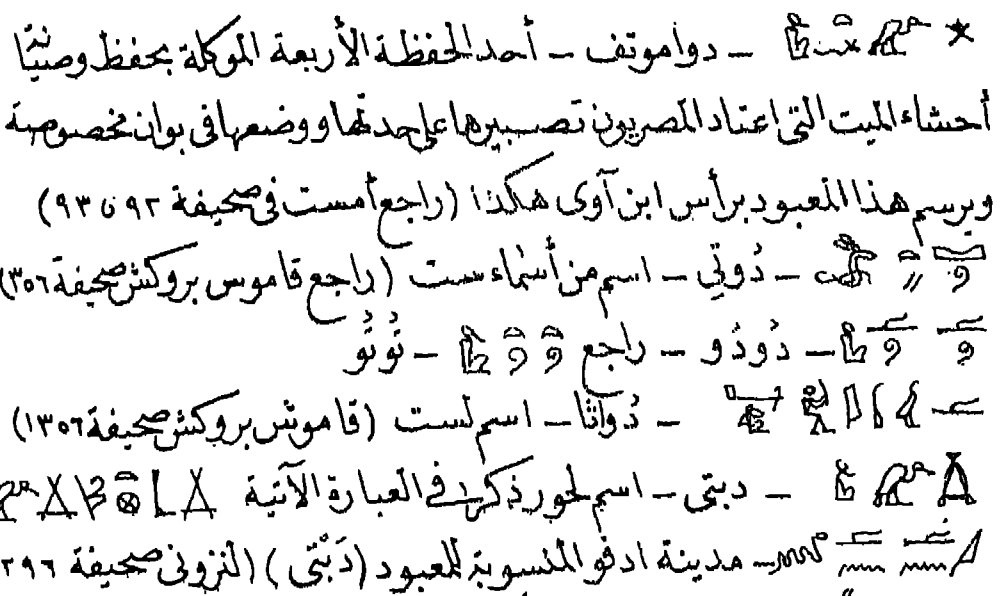 – دواموتف – أحد الحفظة الأربعة الموكلة بحفظ وصنيّا
أحشاء الميت التى اعتاد المصريون تصبيرها على حدتها ووضعها فى بوان مخصوصة
ويرسم هذا المعبود برأس ابن آوى هكذا (راجع أمست فى صحيفة ٩٢ و ٩٣)
– دُوتِي – اسم من أسماء ست (راجع قاموس بروكش صحيفة ٣٥٦)
– دُودُو – راجع – تُوتُو
– دُواتا – اسم لست (قاموس بروكش صحيفة ١٣٥٦)
– دبتى – اسم لحور ذكر فى العبارة الآتية
– مدينة ادفو المنسوبة للمعبود (دَبْتّى) (النزونى صحيفة ٢٩٦